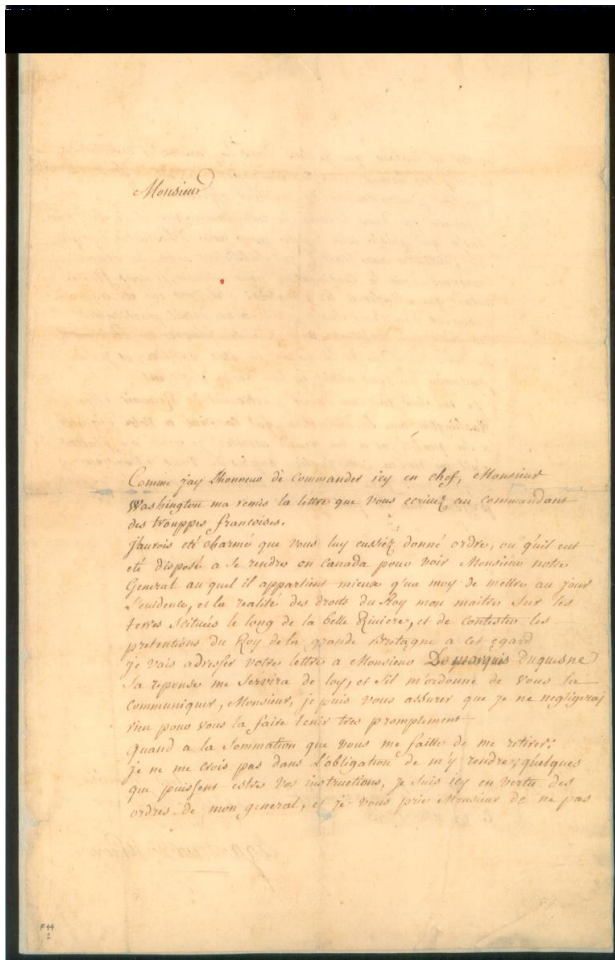 Monsieur
Comme jay l'honneur de commander icy en chef, Monsieur
Washington ma remis la lettre que vous ecriviez au commandant
des trouppes francoises.
J'aurois eté charmé que vous luy eussiéz donné ordre, ou qu'il eut
eté disposé a se rendre en Canada pour voir Monsieur notre
General au quel il appartient mieux qu'a moy de mettre au jour
l'euidence, et la realité des droits du Roy mon maitre sur les
terres scituées le long de la belle Riviere, et de contester les
pretentions du Roy de la grande Bretagne a cet egard
je vais adresser votre lettre a Monsieur Le marquis Duquesne
sa reponse me servira de loy, et s'il m'ordonne de vous la
communiquer, Monsieur, je puis vous assurer que je ne negligeray
rien pour vous la faire tenir tres promptement
Quand a la sommation que vous me faitte de me retirer,
je ne me crois pas dans l'obligation de m'y rendre; quelques
que puissent estres vos instructions, je suis icy en vertu des
ordres de mon general, et je vous prie Monsieur de ne pas
F44
2